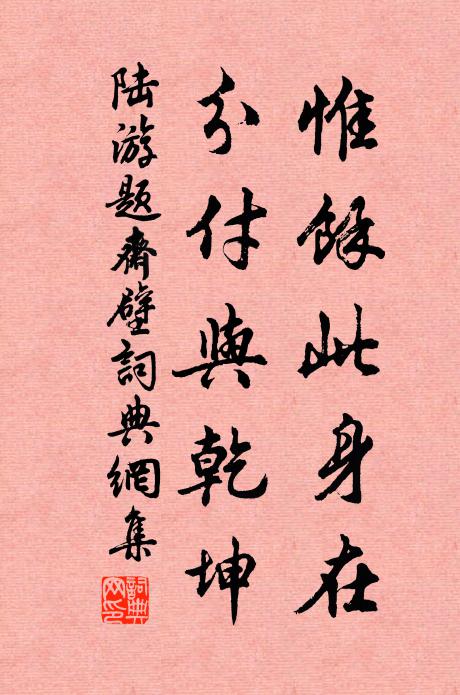 惟餘此身在
分付與乾坤
陆游题齋壁詞典網集
詞典网印